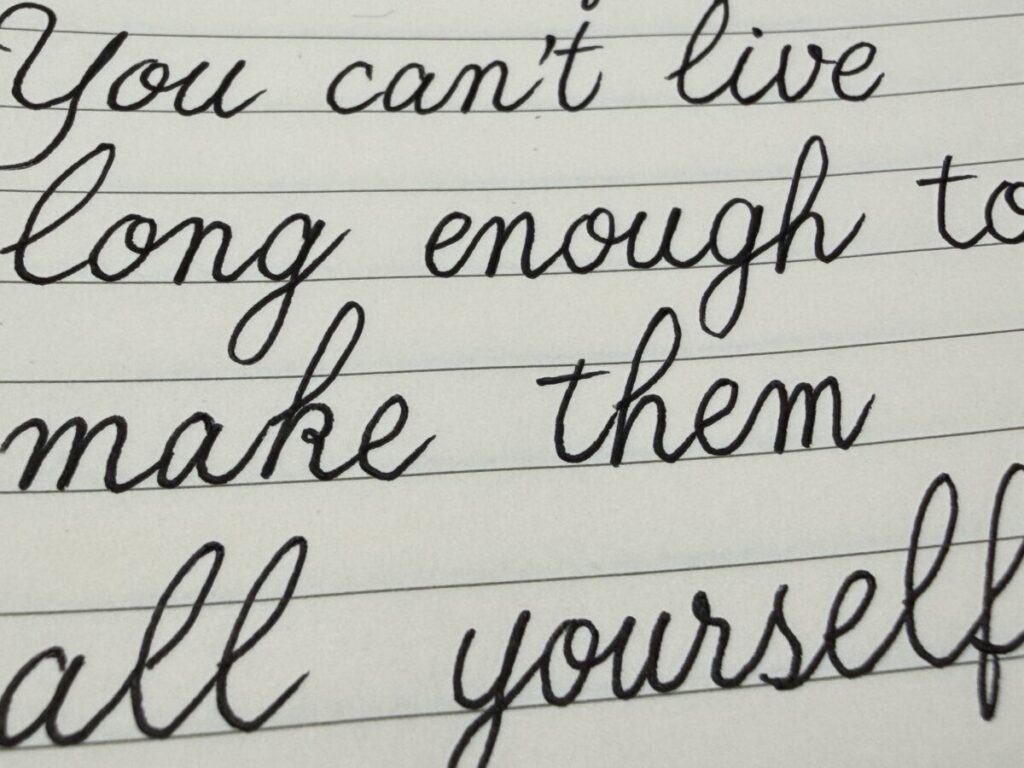 You can't live
long enough to
make them
all yourself